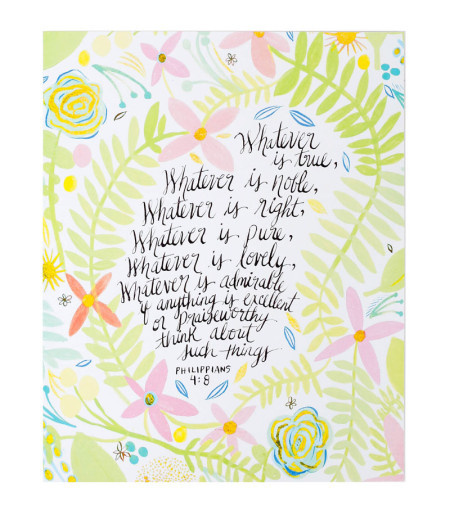 Whatever
is true,
Whatever is noble,
Whatever is right,
Whatever is pure,
Whatever is lovely,
Whatever is admirable
if anything is excellent
or praiseworthy
think about
such things
PHILIPPIANS
4:8